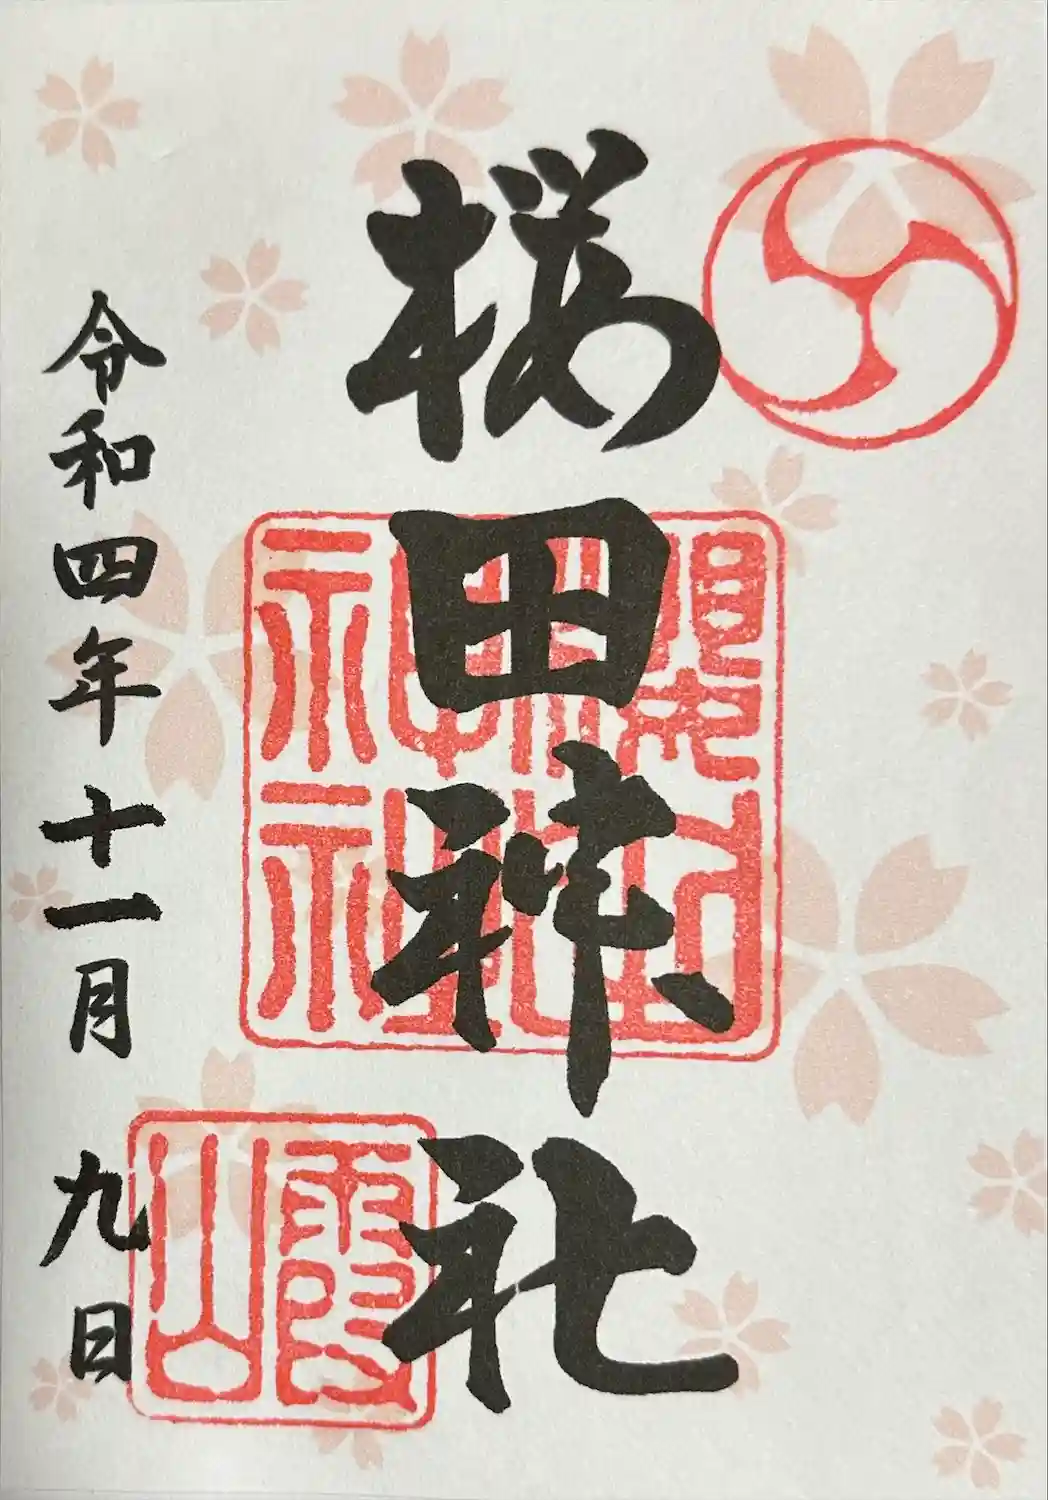 桜田神社
令和四年十一月九日
霞山